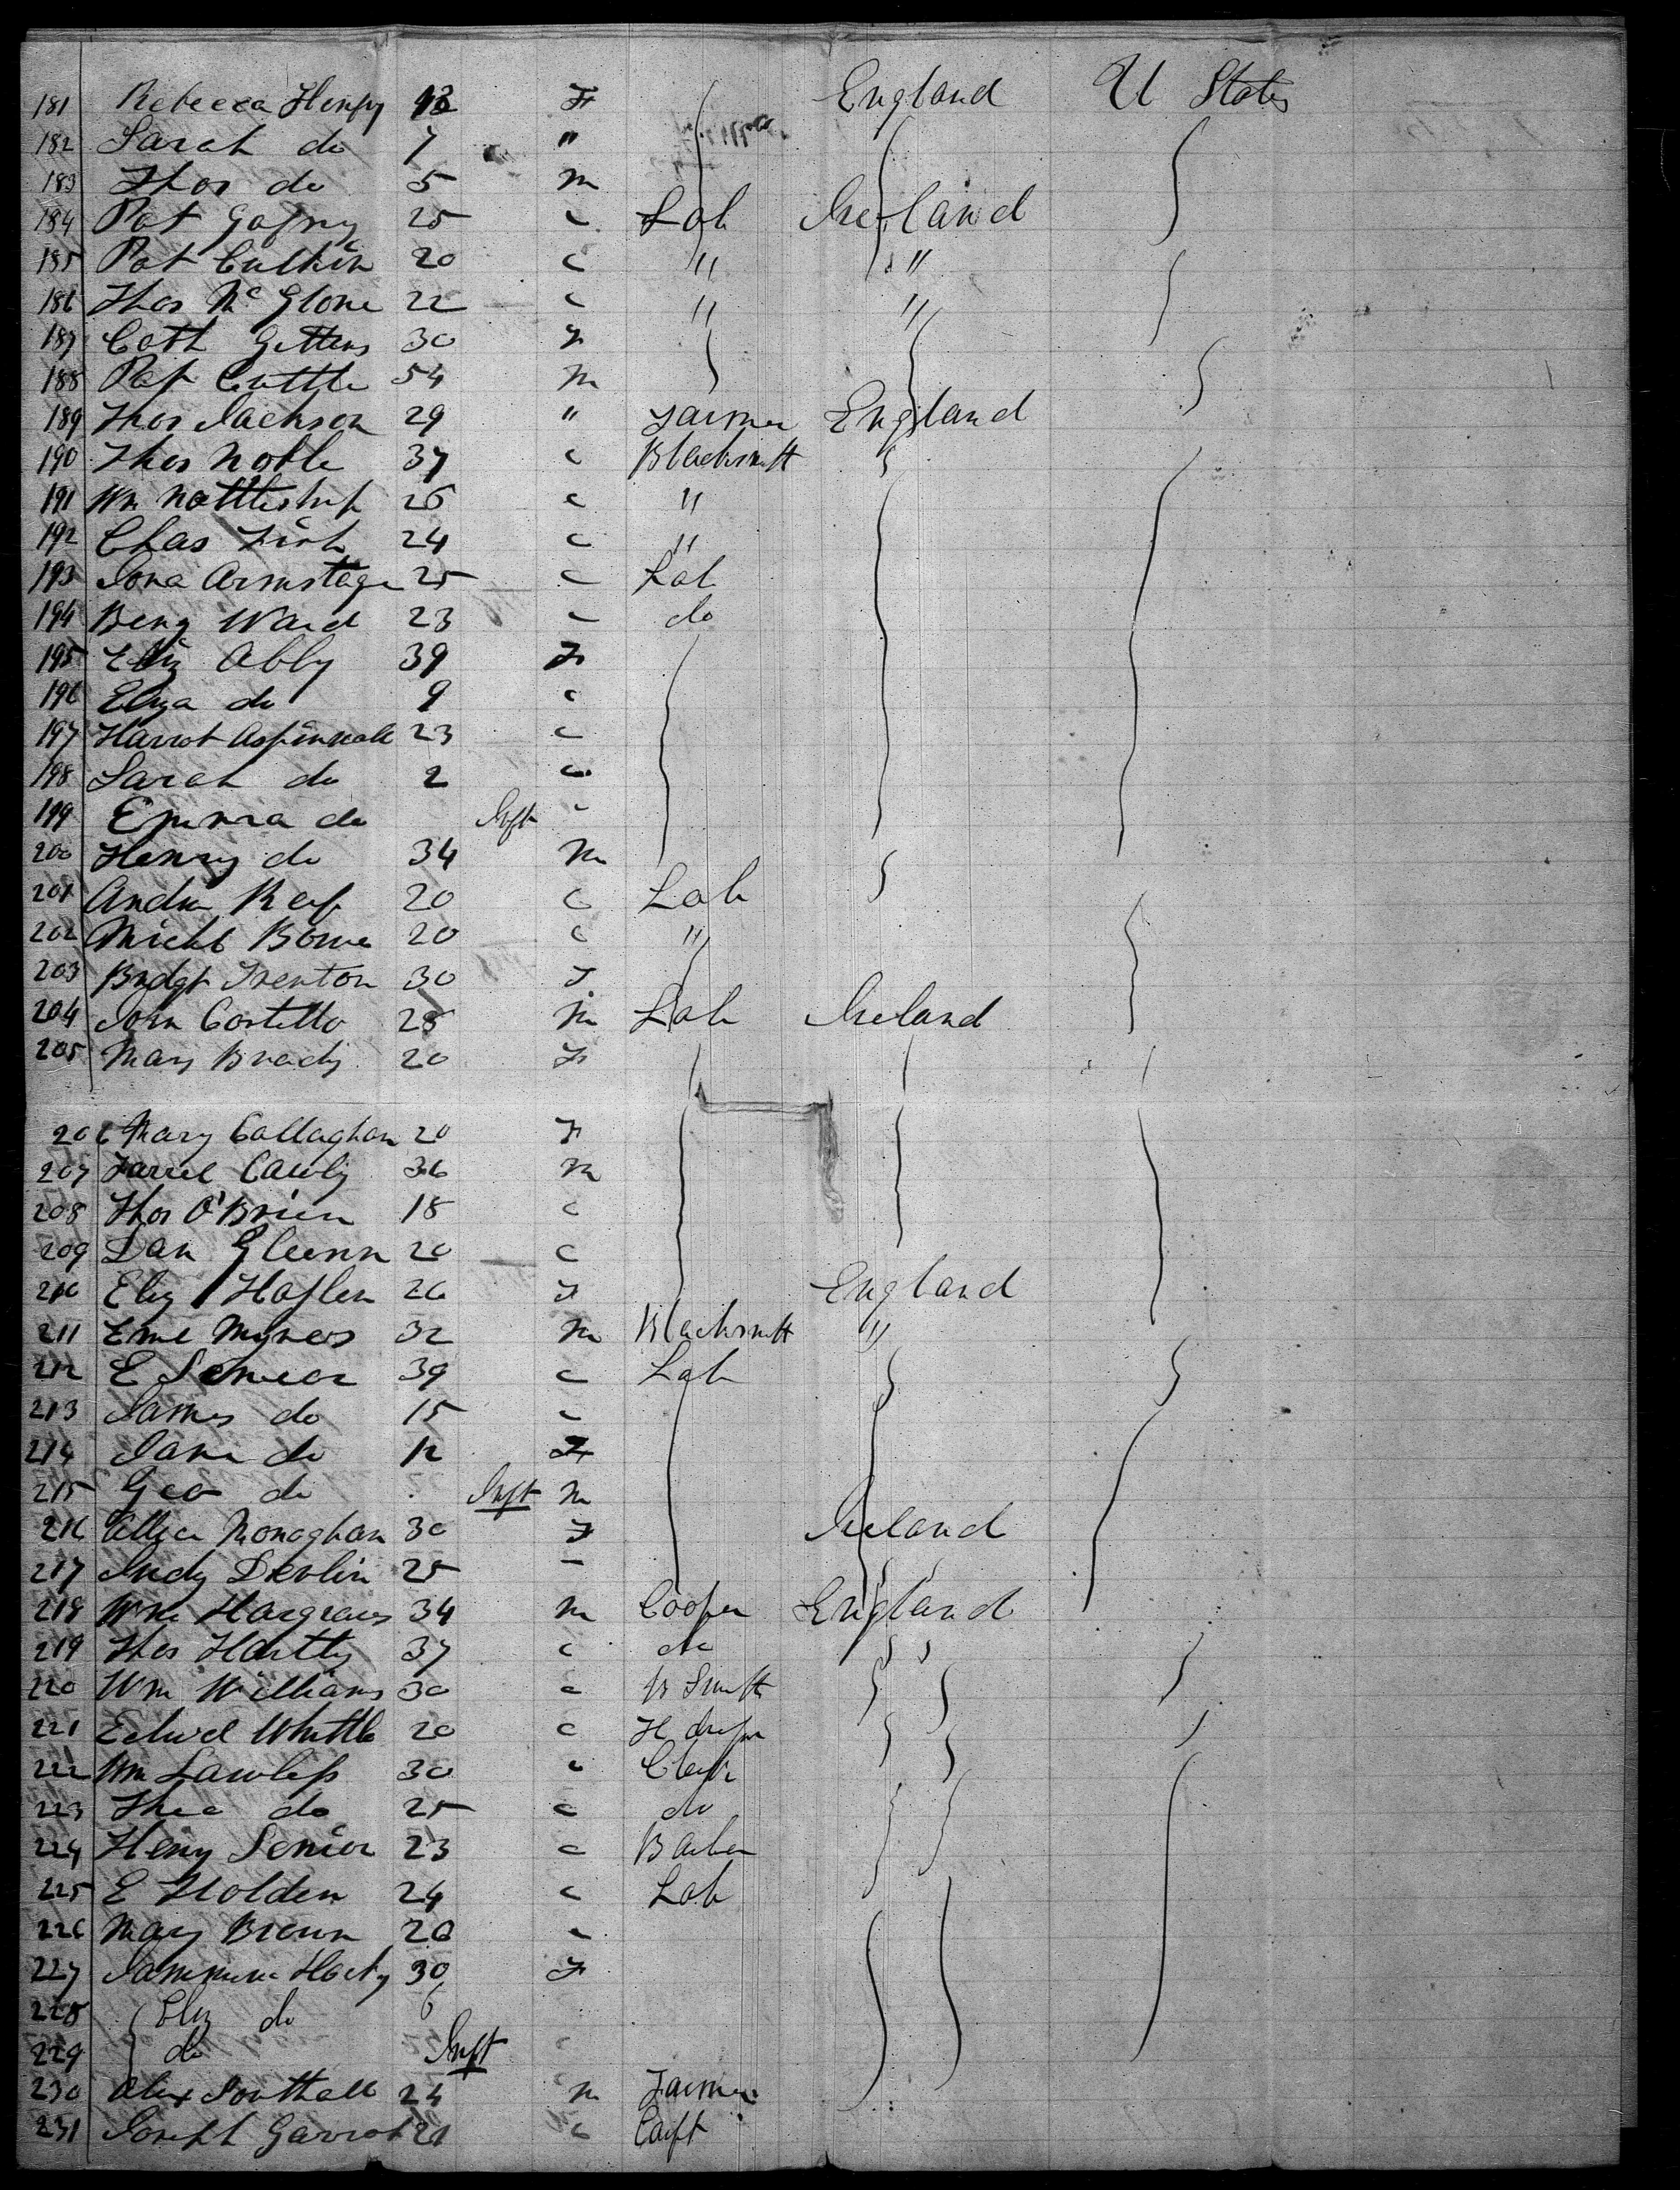 181 Rebecca Henry 13 F England U States
182 Sarah do 7 "
183 Thos do 5 m
184 Pat Gafny 25 " Lab Ireland
185 Pat Culkin 20 " " "
186 Thos McGlone 22 " " "
187 Cath Gettens 30 F
188 Pat Cuttle 54 m
189 Thos Jackson 29 " Farmer England
190 Thos Noble 37 " Blacksmith
191 Wm Nottleship 26 " "
192 Chas Firth 24 " "
193 Jona Armstage 25 " Lab
194 Benj Ward 23 " do
195 Eliz Abby 39 F
196 Eliza do 9 "
197 Harrot Aspinnall 23 "
198 Sarah do 2 "
199 Emma do Inft "
200 Henry do 34 m
201 Andw 20 " Lab
202 Michl Bowe 20 " "
203 Bridgt Trenton 30 F
204 John Costello 28 m Lab Ireland
205 Mary Brady 20 F
206 Mary Callaghan 20 F
207 Farrel Cawly 36 m
208 Thos O'Brien 18 "
209 Dan Gleenn 20 "
210 Eliz Haflen 26 F England
211 Myners 32 m Blacksmith "
212 E Senior 39 " Lab
213 James do 15 "
214 Jane do 12 F
215 Geo do Inft m
216 Monaghan 30 F Ireland
217 Judy Devlin 25 "
218 Wm Hargraves 34 m Cooper England
219 Thos Hartly 37 " do
220 Wm Williams 30 " B Smith
221 Edwd Whittle 20 "
222 Wm Lawless 30 " Clerk
223 do 25 " do
224 Henry Senior 23 " Barber
225 E Holden 24 " Lab
226 Mary Brown 20 "
227 30 F
228 Eliz do 6
229 do Inft "
230 Alex Southall 24 m Farmer
231 Joseph Garrot 21 " Carpt